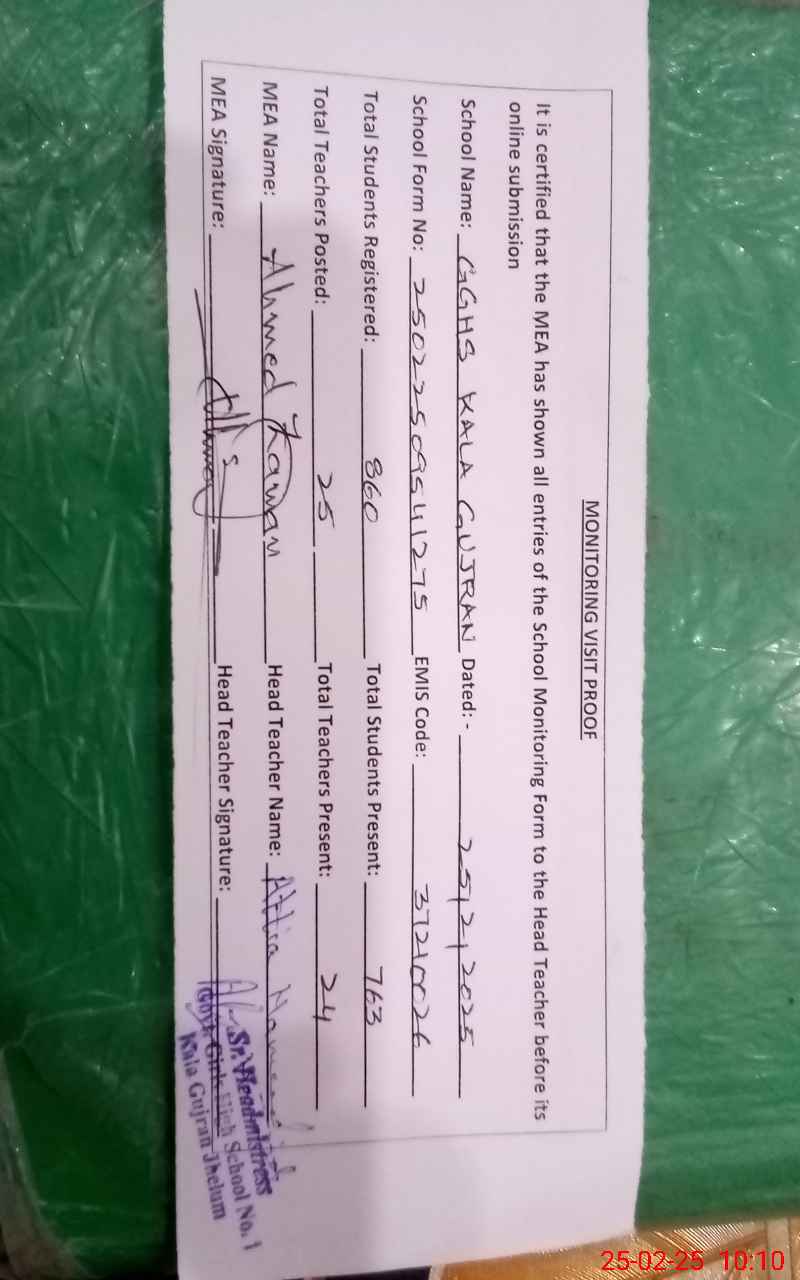 MONITORING VISIT PROOF
It is certified that the MEA has shown all entries of the School Monitoring Form to the Head Teacher before its
online submission
School Name: GGHS KALA GUJRAN Dated: - 25/2/2025
School Form No: 25022509541275 EMIS Code: 37210026
Total Students Registered: 860 Total Students Present: 763
Total Teachers Posted: 25 Total Teachers Present: 24
MEA Name: Ahmed Zaman Head Teacher Name: Attia
MEA Signature: Head Teacher Signature:
Sr. Headmistress
Govt. Girls High School No. 1
Kala Gujran Jhelum
25-02-25 10:10